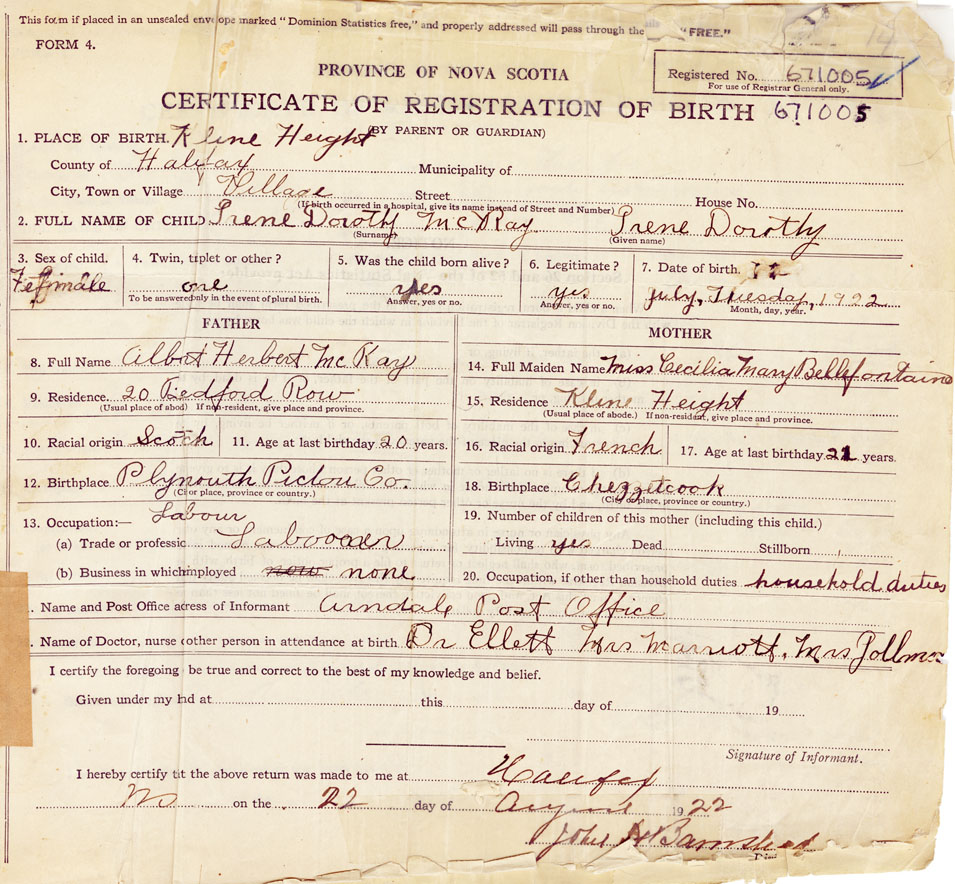 This form if placed in an unsealed envelope marked "Dominion Statistics free," and properly addressed will pass through the "FREE."
FORM 4.
PROVINCE OF NOVA SCOTIA
Registered No. 671005
For use of Registrar General only.
CERTIFICATE OF REGISTRATION OF BIRTH 671005
(BY PARENT OR GUARDIAN)
1. PLACE OF BIRTH. Kline Height
County of Halifax Municipality of
City, Town or Village Village Street House No.
(If birth occurred in a hospital, give its name instead of Street and Number)
2. FULL NAME OF CHILD Irene Dorothy McKay Irene Dorothy
(Surname) (Given name)
3. Sex of child. 4. Twin, triplet or other ? 5. Was the child born alive ? 6. Legitimate ? 7. Date of birth. 12
Female one yes yes July, Tuesday, 1922
To be answered only in the event of plural birth. Answer, yes or no. Answer, yes or no. Month, day, year.
FATHER
8. Full Name Albert Herbert McKay
9. Residence. 20 Bedford Row
(Usual place of abod) If non-resident, give place and province.
10. Racial origin Scotch 11. Age at last birthday 20 years.
12. Birthplace Plymouth Pictou Co.
(Ci or place, province or country.)
13. Occupation:— Labour
(a) Trade or professic Labooer
(b) Business in which mployed now none
MOTHER
14. Full Maiden Name Miss Cecilia Mary Bellefontaine
15. Residence Kline Height
(Usual place of abode.) If non-resident, give place and province.
16. Racial origin French 17. Age at last birthday 21 years.
18. Birthplace Chezzetcook
(City or place, province or country.)
19. Number of children of this mother (including this child.)
Living yes Dead Stillborn
20. Occupation, if other than household duties household duties
. Name and Post Office acress of Informant Armdale Post Office
. Name of Doctor, nurse other person in attendance at birth Dr Ellett Mrs Marriott, Mrs Jollmor
I certify the foregoing be true and correct to the best of my knowledge and belief.
Given under my hd at this day of 19
Signature of Informant.
I hereby certify tit the above return was made to me at Halifax
No on the 22 day of August 1922
John H Barnstead